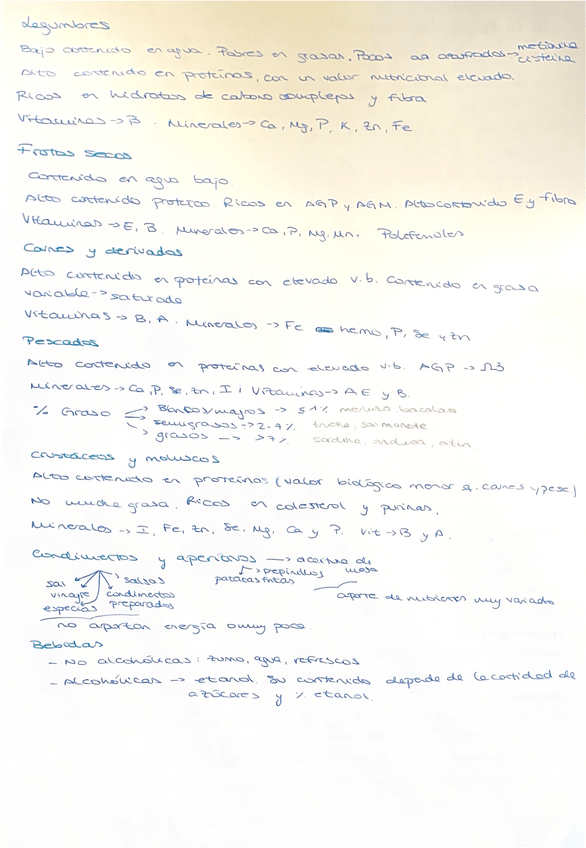 Legumbres
Bajo contenido en agua. Pobres en grasas. Pocos aa azufrados → metionina
cisteina
Alto contenido en proteínas, con un valor nutricional elevado.
Ricos en hidratos de carbono complejos y fibra
Vitaminas → B. Minerales → Ca, Mg, P, K, Zn, Fe
Frutos secos
Contenido en agua bajo.
Alto contenido proteico. Ricos en AGP y AGM. Alto contenido E y fibra
Vitaminas → E, B. Minerales → Ca, P, Mg, Mn. Polifenoles
Carnes y derivados
Alto contenido en proteínas con elevado v.b. Contenido en grasa
variable → saturado
Vitaminas → B, A. Minerales → Fe hemo, P, Se y Zn
Pescados
Alto contenido en proteínas con elevado v.b. AGP → Ω3
Minerales → Ca, P, Se, Zn, I; Vitaminas → A, E y B.
% Graso → Blancos/magros → ≤1% merluza, bacalao
→ semigrasos → 2-7% trucha, salmonete
→ grasos → >7% sardina, anchoa, atún
Crustáceos y moluscos
Alto contenido en proteínas (valor biológico menor q. carnes y pesc)
No mucha grasa. Ricos en colesterol y purinas.
Minerales → I, Fe, Zn, Se, Mg, Ca y P. Vit → B y A.
Condimentos y aperitivos → aceituna de
mesa
→ pepinillos
patatas fritas
sal salsas
vinagre condimentos
especias preparados
aporte de nutrientes muy variado
no aportan energía o muy poca
Bebidas
- No alcohólicas: zumo, agua, refrescos
- Alcohólicas → etanol. Su contenido depende de la cantidad de
azúcares y % etanol.